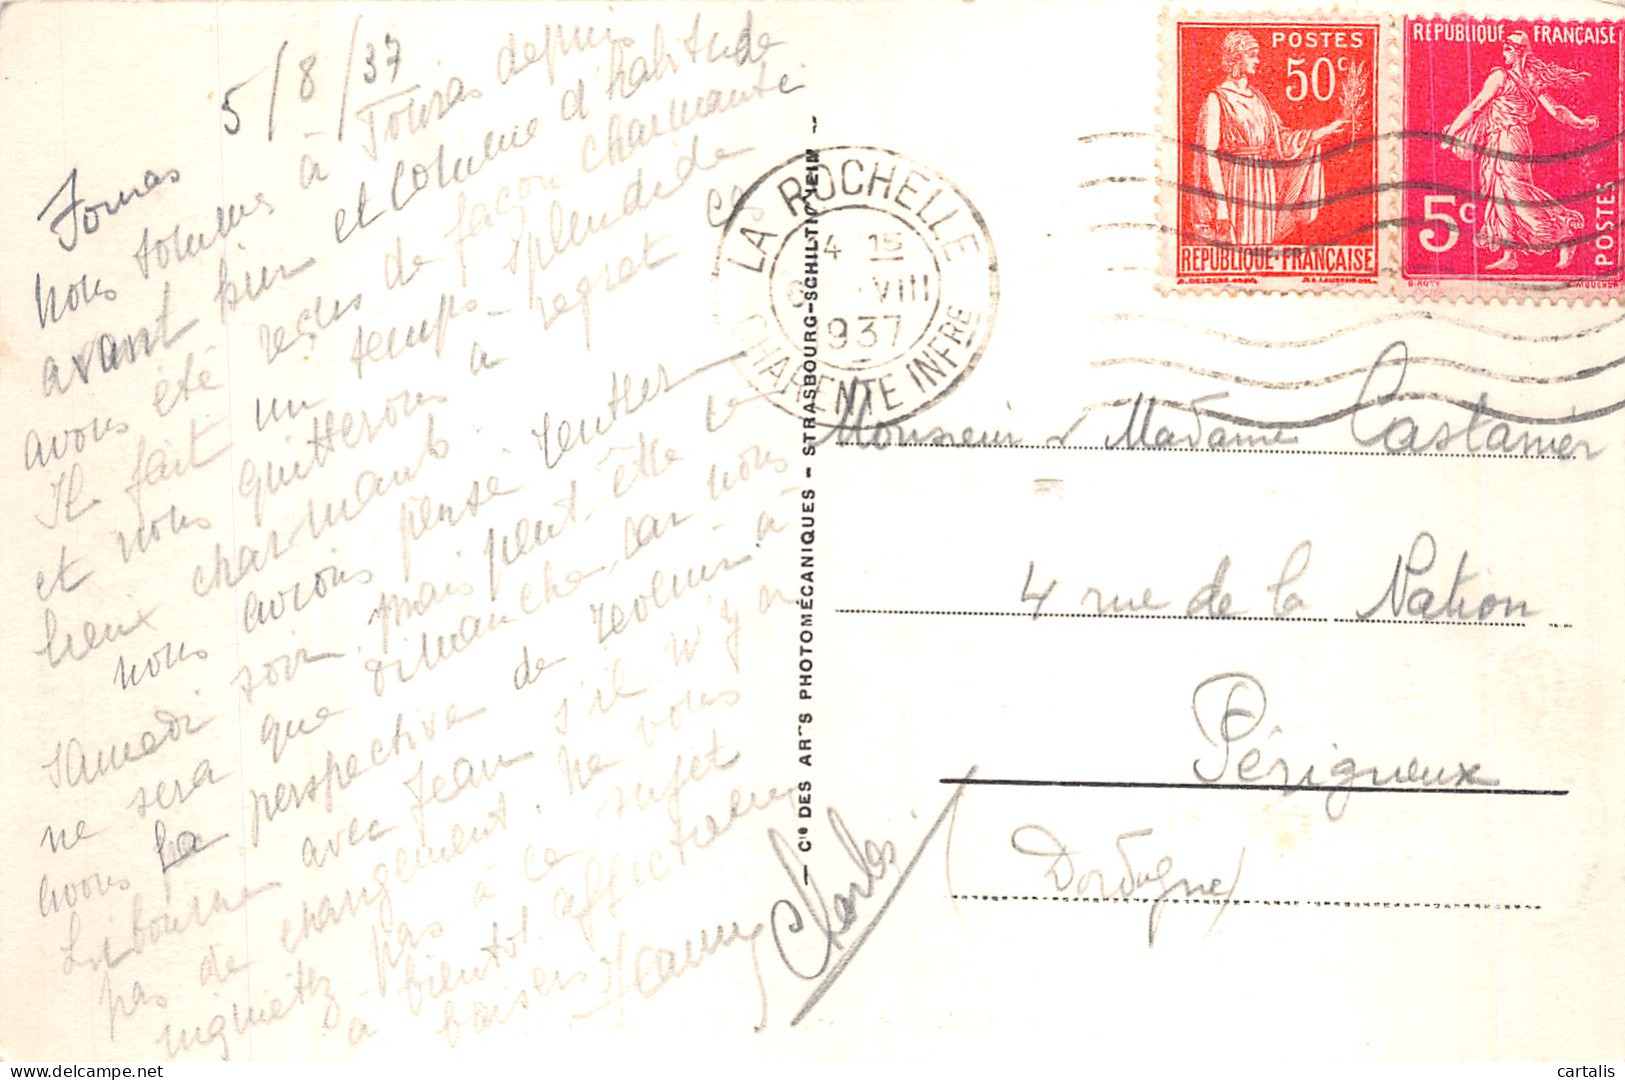 5/8/37
Fouras
nous sommes à Fouras depuis
avant hier et comme d'habitude
avons été reçus de façon charmante
Il fait un temps splendide
et nous quitterons à regret ces
lieux charmants.
nous avions pensé rentrer
samedi soir, mais peut-être ce
ne sera que dimanche car nous
avons la perspective de revenir à
Libourne avec Jean s'il n'y a
pas de changement. Ne vous
inquiétez pas à ce sujet
à bientôt affectueux
baisers Jeanne Charles
LA ROCHELLE
4 15
VIII
1937
CHARENTE INFRE
POSTES
50c
REPUBLIQUE-FRANÇAISE
REPUBLIQUE FRANÇAISE
5c
POSTES
Cie DES ARTS PHOTOMÉCANIQUES - STRASBOURG-SCHILTIGHEIM
Monsieur & Madame Castanier
4 rue de la Nation
Périgueux
(Dordogne)
cartalis